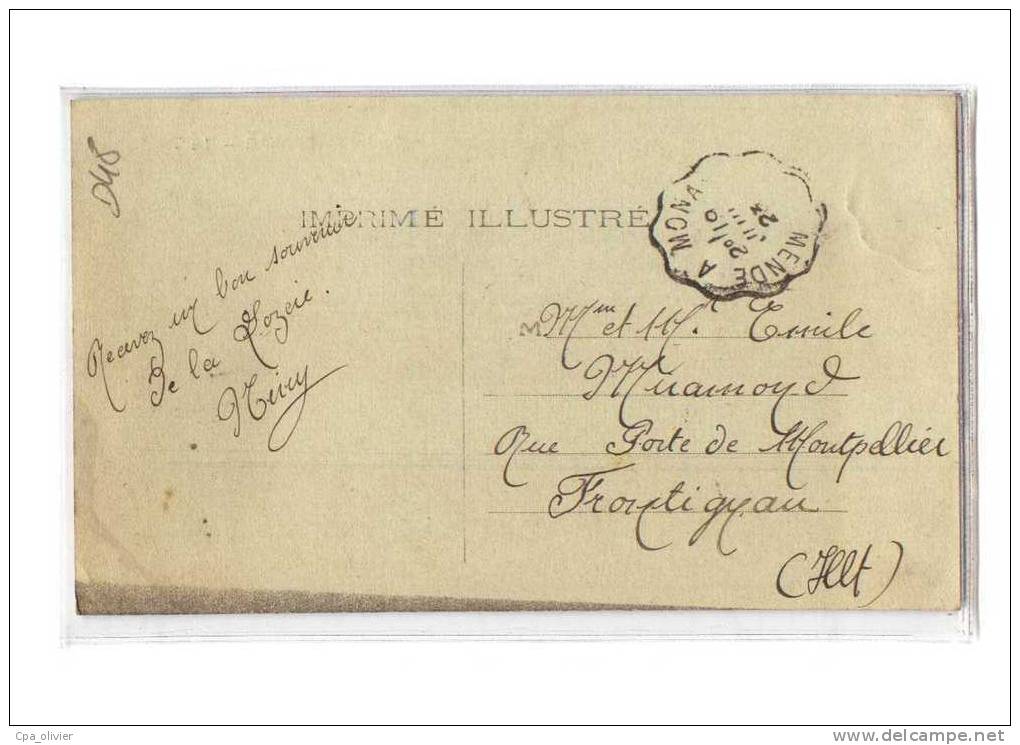 D48
IMPRIMÉ ILLUSTRÉ
MENDE A MONA
20/10
23
Recevez un bon souvenir
De la Lozère.
M
Mme et M. Emile
Rue Porte de Montpellier
Frontignan
(Hlt)
Cpa_olivier
www.delcampe.net